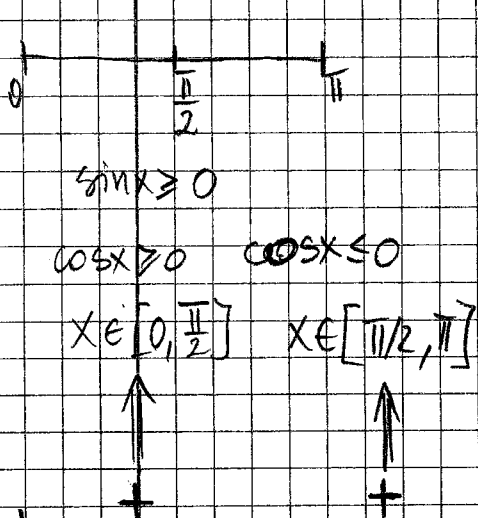 0 π/2 π
sinx ≥ 0
cosx ≥ 0 cosx ≤ 0
x ∈ [0, π/2] x ∈ [π/2, π]
+ +